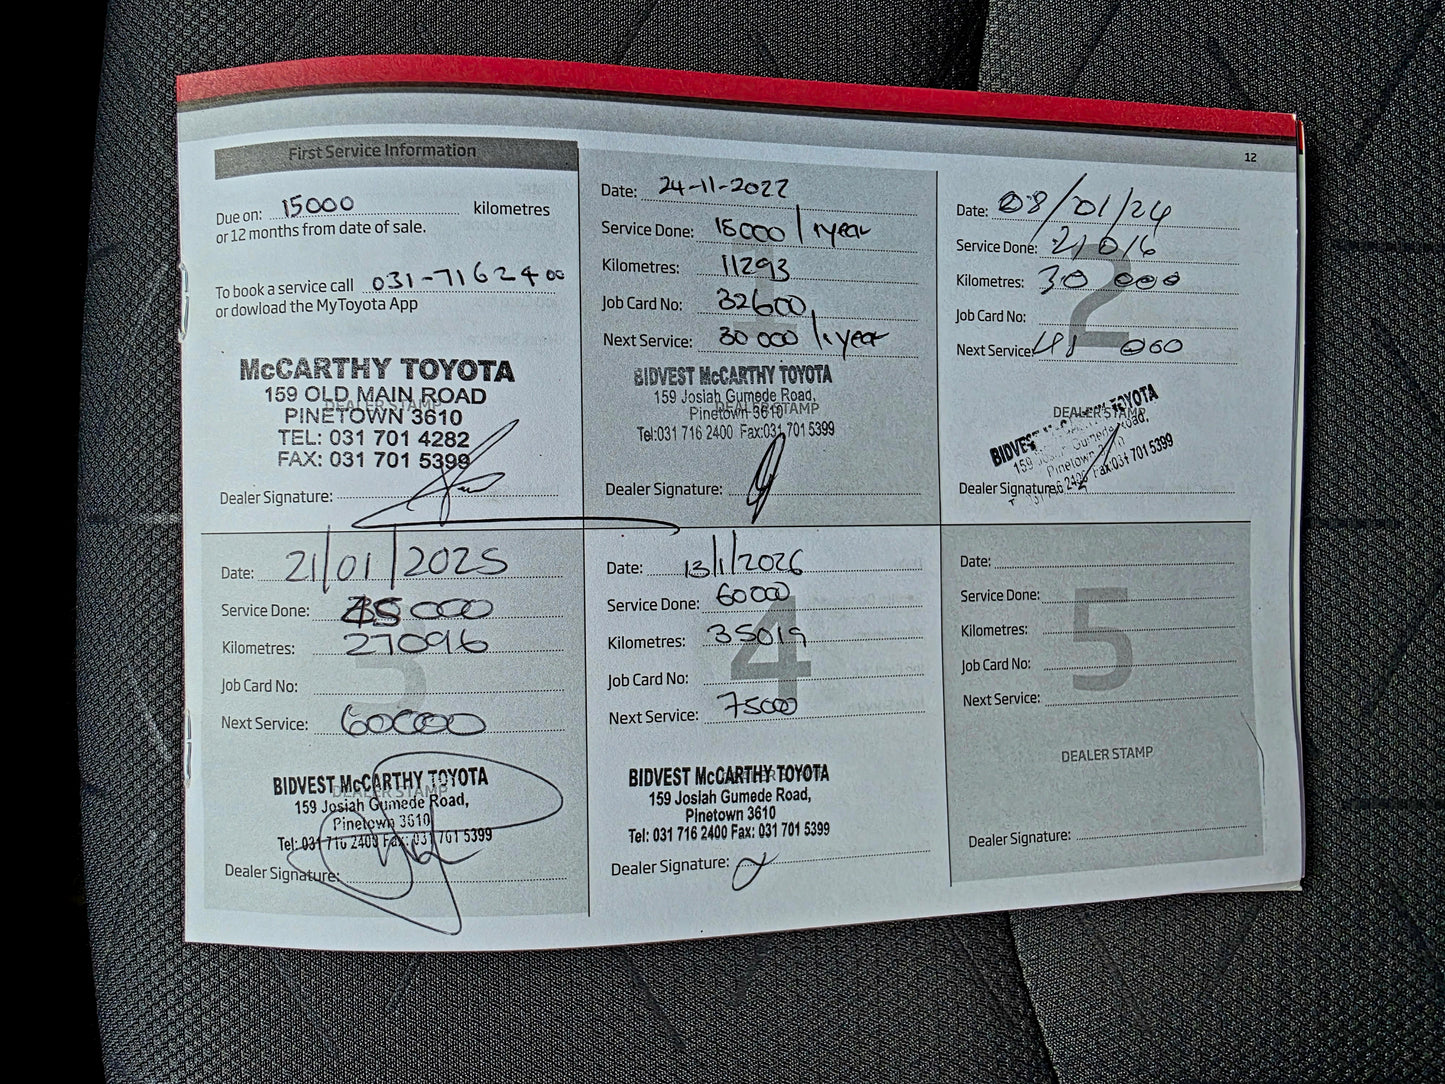 12
First Service Information
Due on: 15000 kilometres
or 12 months from date of sale.
To book a service call 031-7162400
or dowload the MyToyota App
McCARTHY TOYOTA
159 OLD MAIN ROAD
DEALER STAMP
PINETOWN 3610
TEL: 031 701 4282
FAX: 031 701 5399
Dealer Signature:
Date: 24-11-2022
Service Done: 15000/1year
Kilometres: 11293
Job Card No: 32600
Next Service: 30000/1year
BIDVEST McCARTHY TOYOTA
159 Josiah Gumede Road,
DEALER STAMP
Pinetown 3610
Tel:031 716 2400 Fax:031 701 5399
Dealer Signature:
2
Date: 08/01/24
Service Done: 21016
Kilometres: 30 000
Job Card No:
Next Service: 45 000
DEALER STAMP
BIDVEST McCARTHY TOYOTA
159 Josiah Gumede Road,
Pinetown
716 2400 Fax:031 701 5399
Dealer Signature:
3
Date: 21/01/2025
Service Done: 45000
Kilometres: 27096
Job Card No:
Next Service: 60000
BIDVEST McCARTHY TOYOTA
DEALER STAMP
159 Josiah Gumede Road,
Pinetown 3610
Tel: 031 716 2400 Fax: 031 701 5399
Dealer Signature:
4
Date: 13/1/2026
Service Done: 60000
Kilometres: 35019
Job Card No:
Next Service: 75000
BIDVEST McCARTHY TOYOTA
159 Josiah Gumede Road,
Pinetown 3610
Tel: 031 716 2400 Fax: 031 701 5399
Dealer Signature:
5
Date:
Service Done:
Kilometres:
Job Card No:
Next Service:
DEALER STAMP
Dealer Signature: